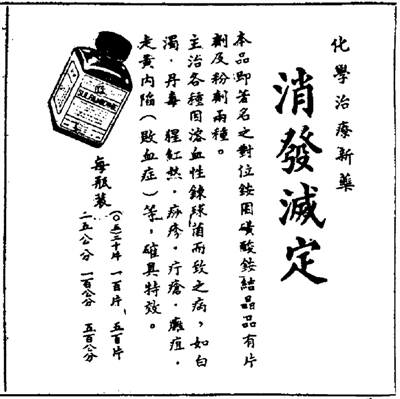 化學治療新藥
消發滅定
本品即著名之對位銨困磺酸銨結晶品有片
劑及粉劑兩種。
主治各種因溶血性鍊球菌而致之病，如白
濁．丹毒 猩紅熱．痧疹．疔瘡．癰疽．
走黄内陷（敗血症）等，確具特效。
每瓶装
二十片 一百片、五百片
二五公分 一百公分 五百公分